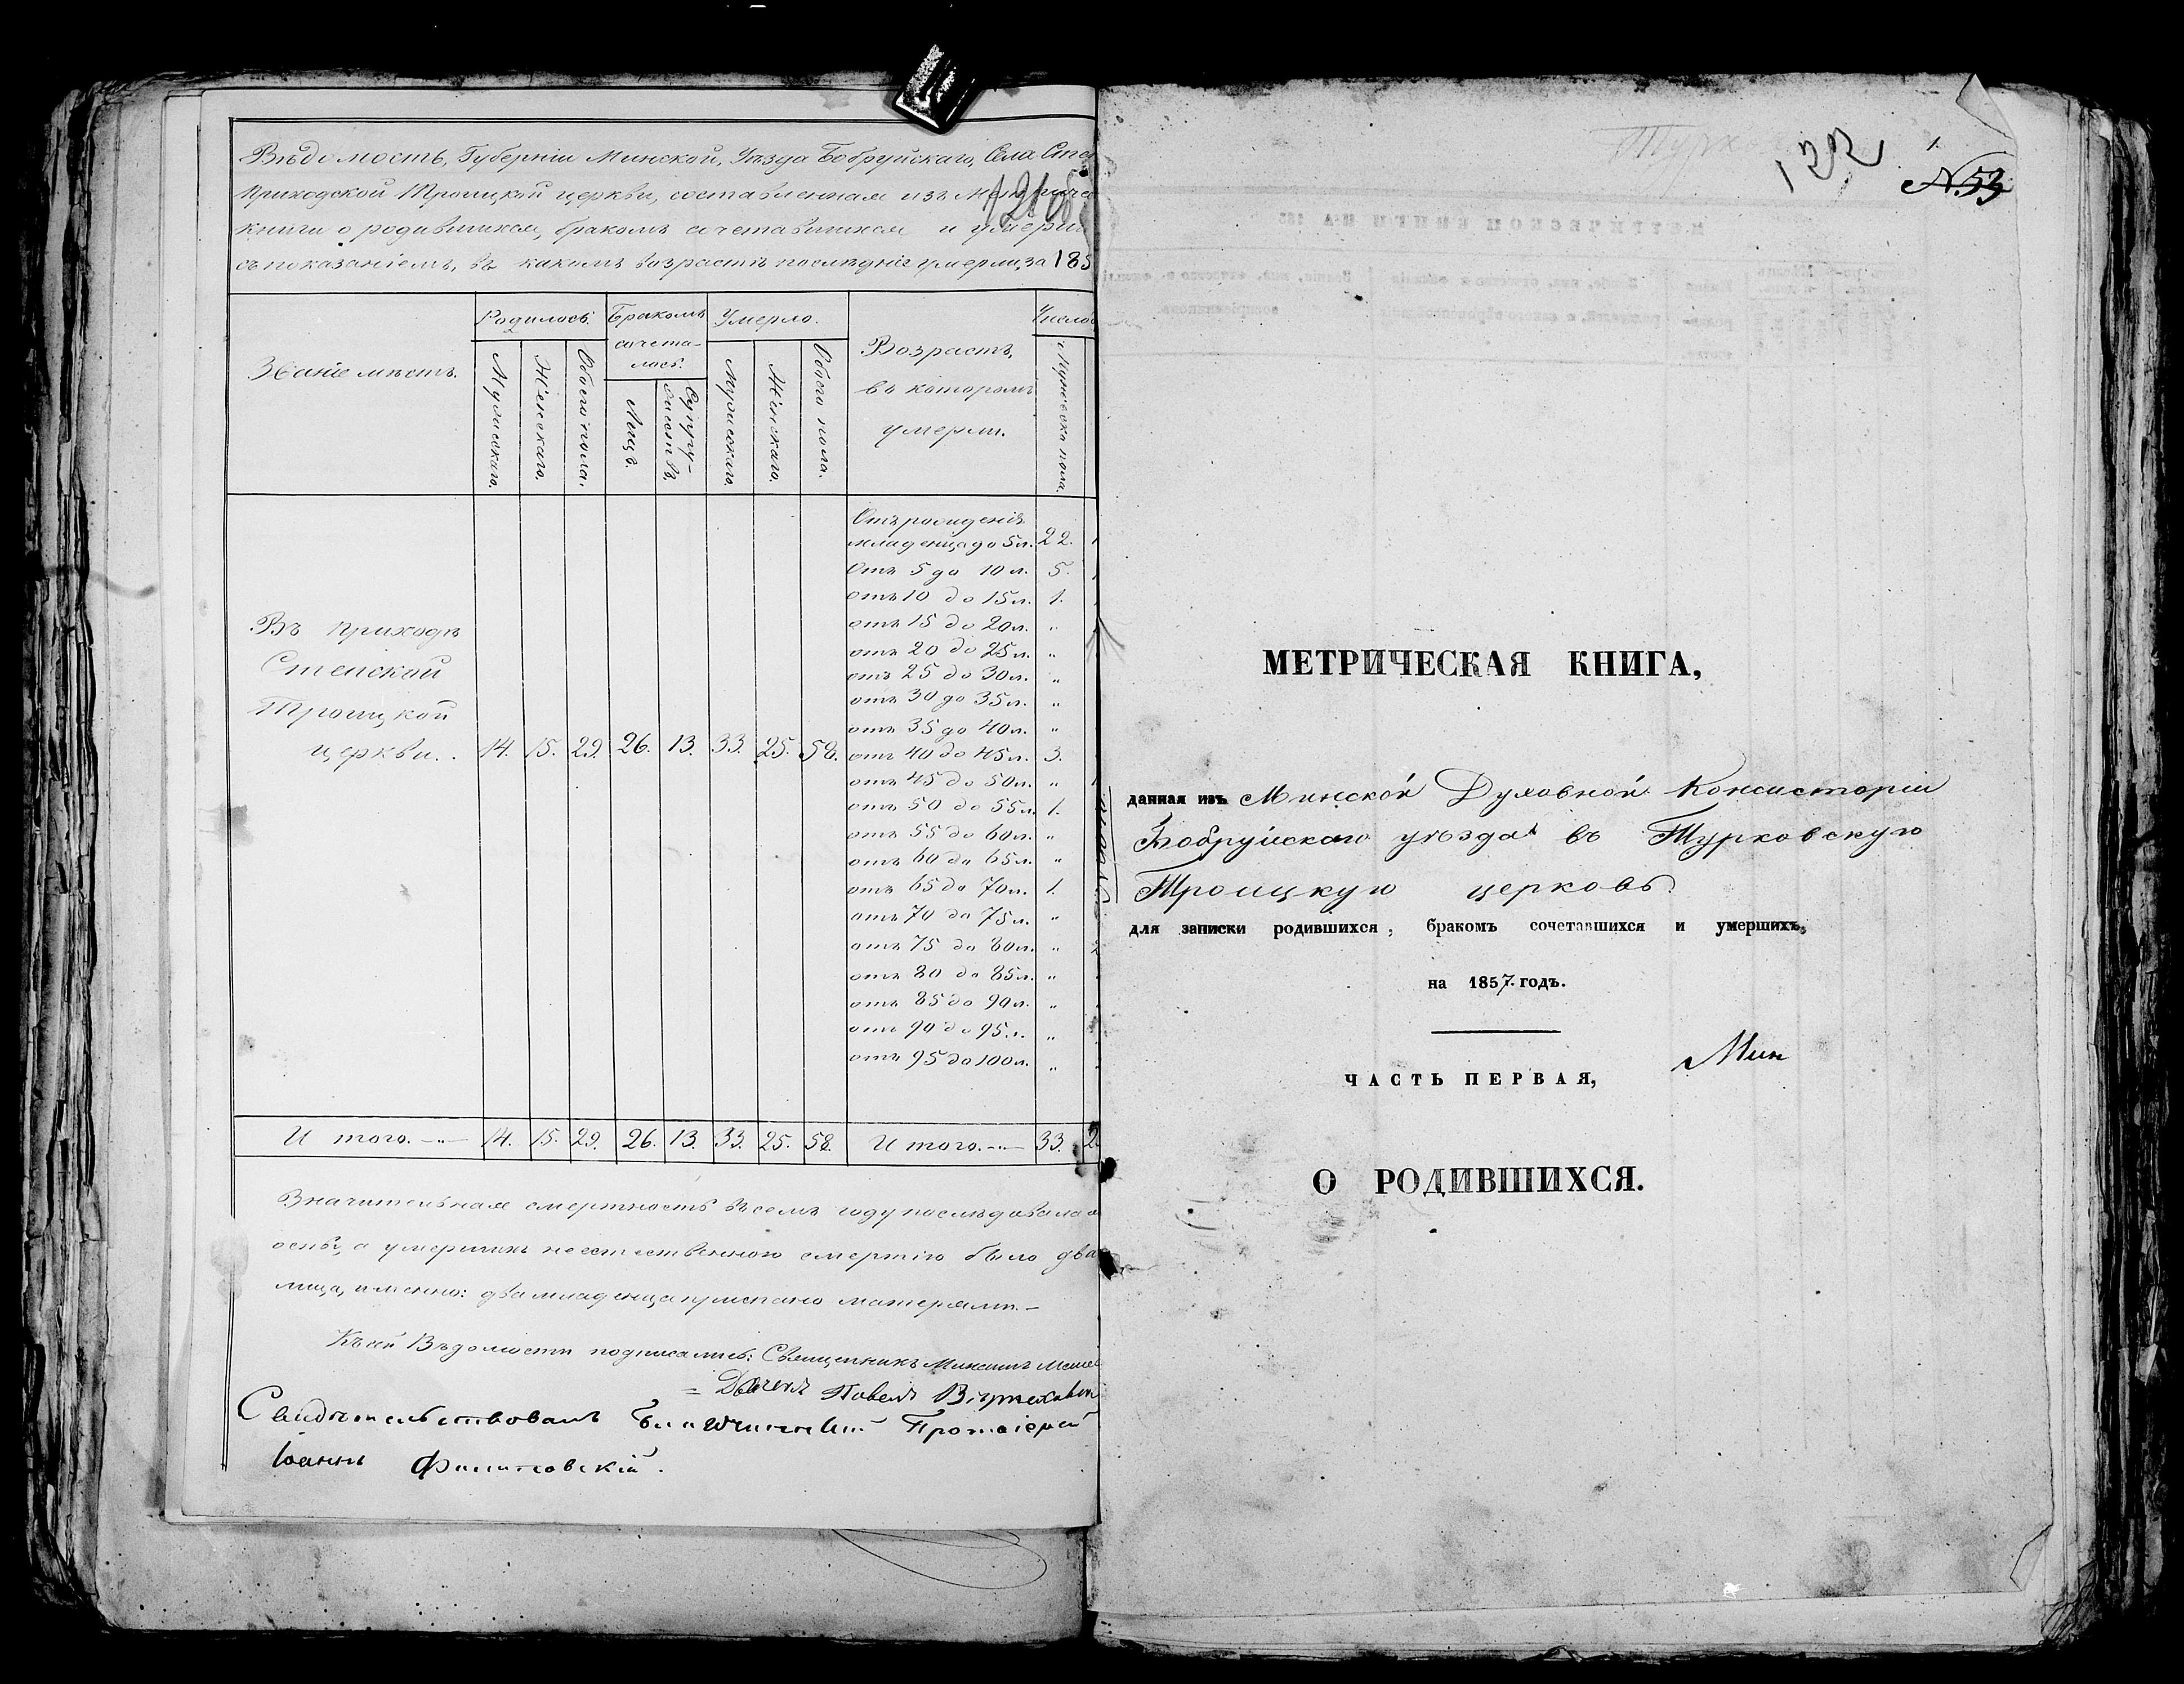 Вѣдомость, Губерніи Минской, Уѣзда Бобруйскаго, Села
приходской Троицкой церкви, составленная изъ
книги о родившихся, бракомъ сочетавшихся и
съ показаніемъ, въ какомъ возрастѣ послѣдніе умерли, за 185
Званіе мѣстъ.
Родилось.
Мужескаго.
Женскаго.
Обоего пола.
Бракомъ
сочета-
лось.
Лицъ.
Супру-
жествъ.
Умерло.
Мужескаго.
Женскаго.
Обоего пола.
Возрастъ,
въ которомъ
умерли.
Число
Мужеска пола.
Въ приходѣ
Степской
Троицкой
церкви. . 14. 15. 29. 26. 13. 33. 25. 58.
Отъ рожденія
младенца до 5 л. 22.
Отъ 5 до 10 л. 5.
отъ 10 до 15 л. 1.
отъ 15 до 20 л. "
отъ 20 до 25 л. "
отъ 25 до 30 л. "
отъ 30 до 35 л. "
отъ 35 до 40 л. "
отъ 40 до 45 л. 3.
отъ 45 до 50 л. "
отъ 50 до 55 л. 1.
отъ 55 до 60 л. "
отъ 60 до 65 л. "
отъ 65 до 70 л. 1.
отъ 70 до 75 л. "
отъ 75 до 80 л. "
отъ 80 до 85 л. "
отъ 85 до 90 л. "
отъ 90 до 95 л. "
отъ 95 до 100 л. "
И того. -"- 14. 15. 29. 26. 13. 33. 25. 58. И того. -"- 33. 2
Значительная смертность въ семъ году послѣдовала
оспы, а умершихъ неестественною смертію было два
лица, именно: два младенца приспано матерями. -
Къ сей Вѣдомости подписались: Священникъ
= Дьячекъ Павелъ
Свидѣтельствовалъ Благочинный Протоіерей
Іоаннъ
132
1.
N. 53
МЕТРИЧЕСКАЯ КНИГА,
данная изъ Минской Духовной Консисторіи
Бобруйскаго уѣзда въ Турковскую
Троицкую церковь.
для записки родившихся, бракомъ сочетавшихся и умершихъ,
на 1857. годъ.
Мин
ЧАСТЬ ПЕРВАЯ,
О РОДИВШИХСЯ.